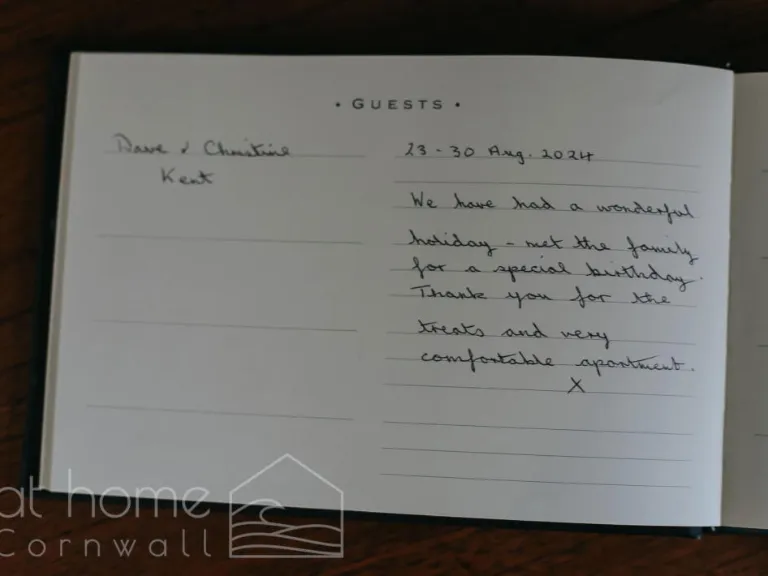 • GUESTS •
Dave & Christine
Kent
23 - 30 Aug. 2024
We have had a wonderful
holiday - met the family
for a special birthday.
Thank you for the
treats and very
comfortable apartment.
X
at home
Cornwall